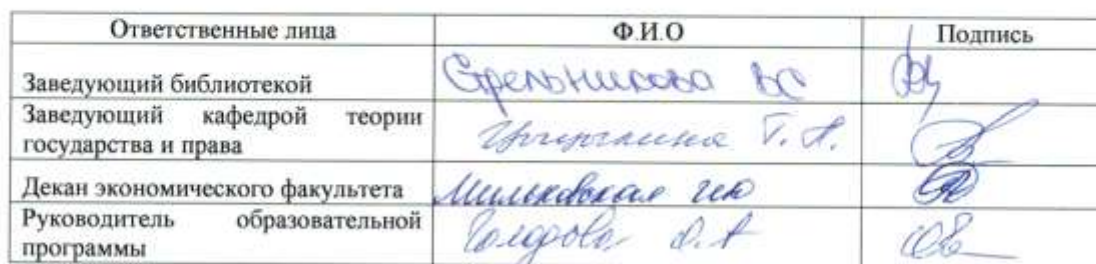 Ответственные лица Ф.И.О Подпись
Заведующий библиотекой Стрельникова ВС
Заведующий кафедрой теории
государства и права Т. Н.
Декан экономического факультета Мильковская
Руководитель образовательной
программы